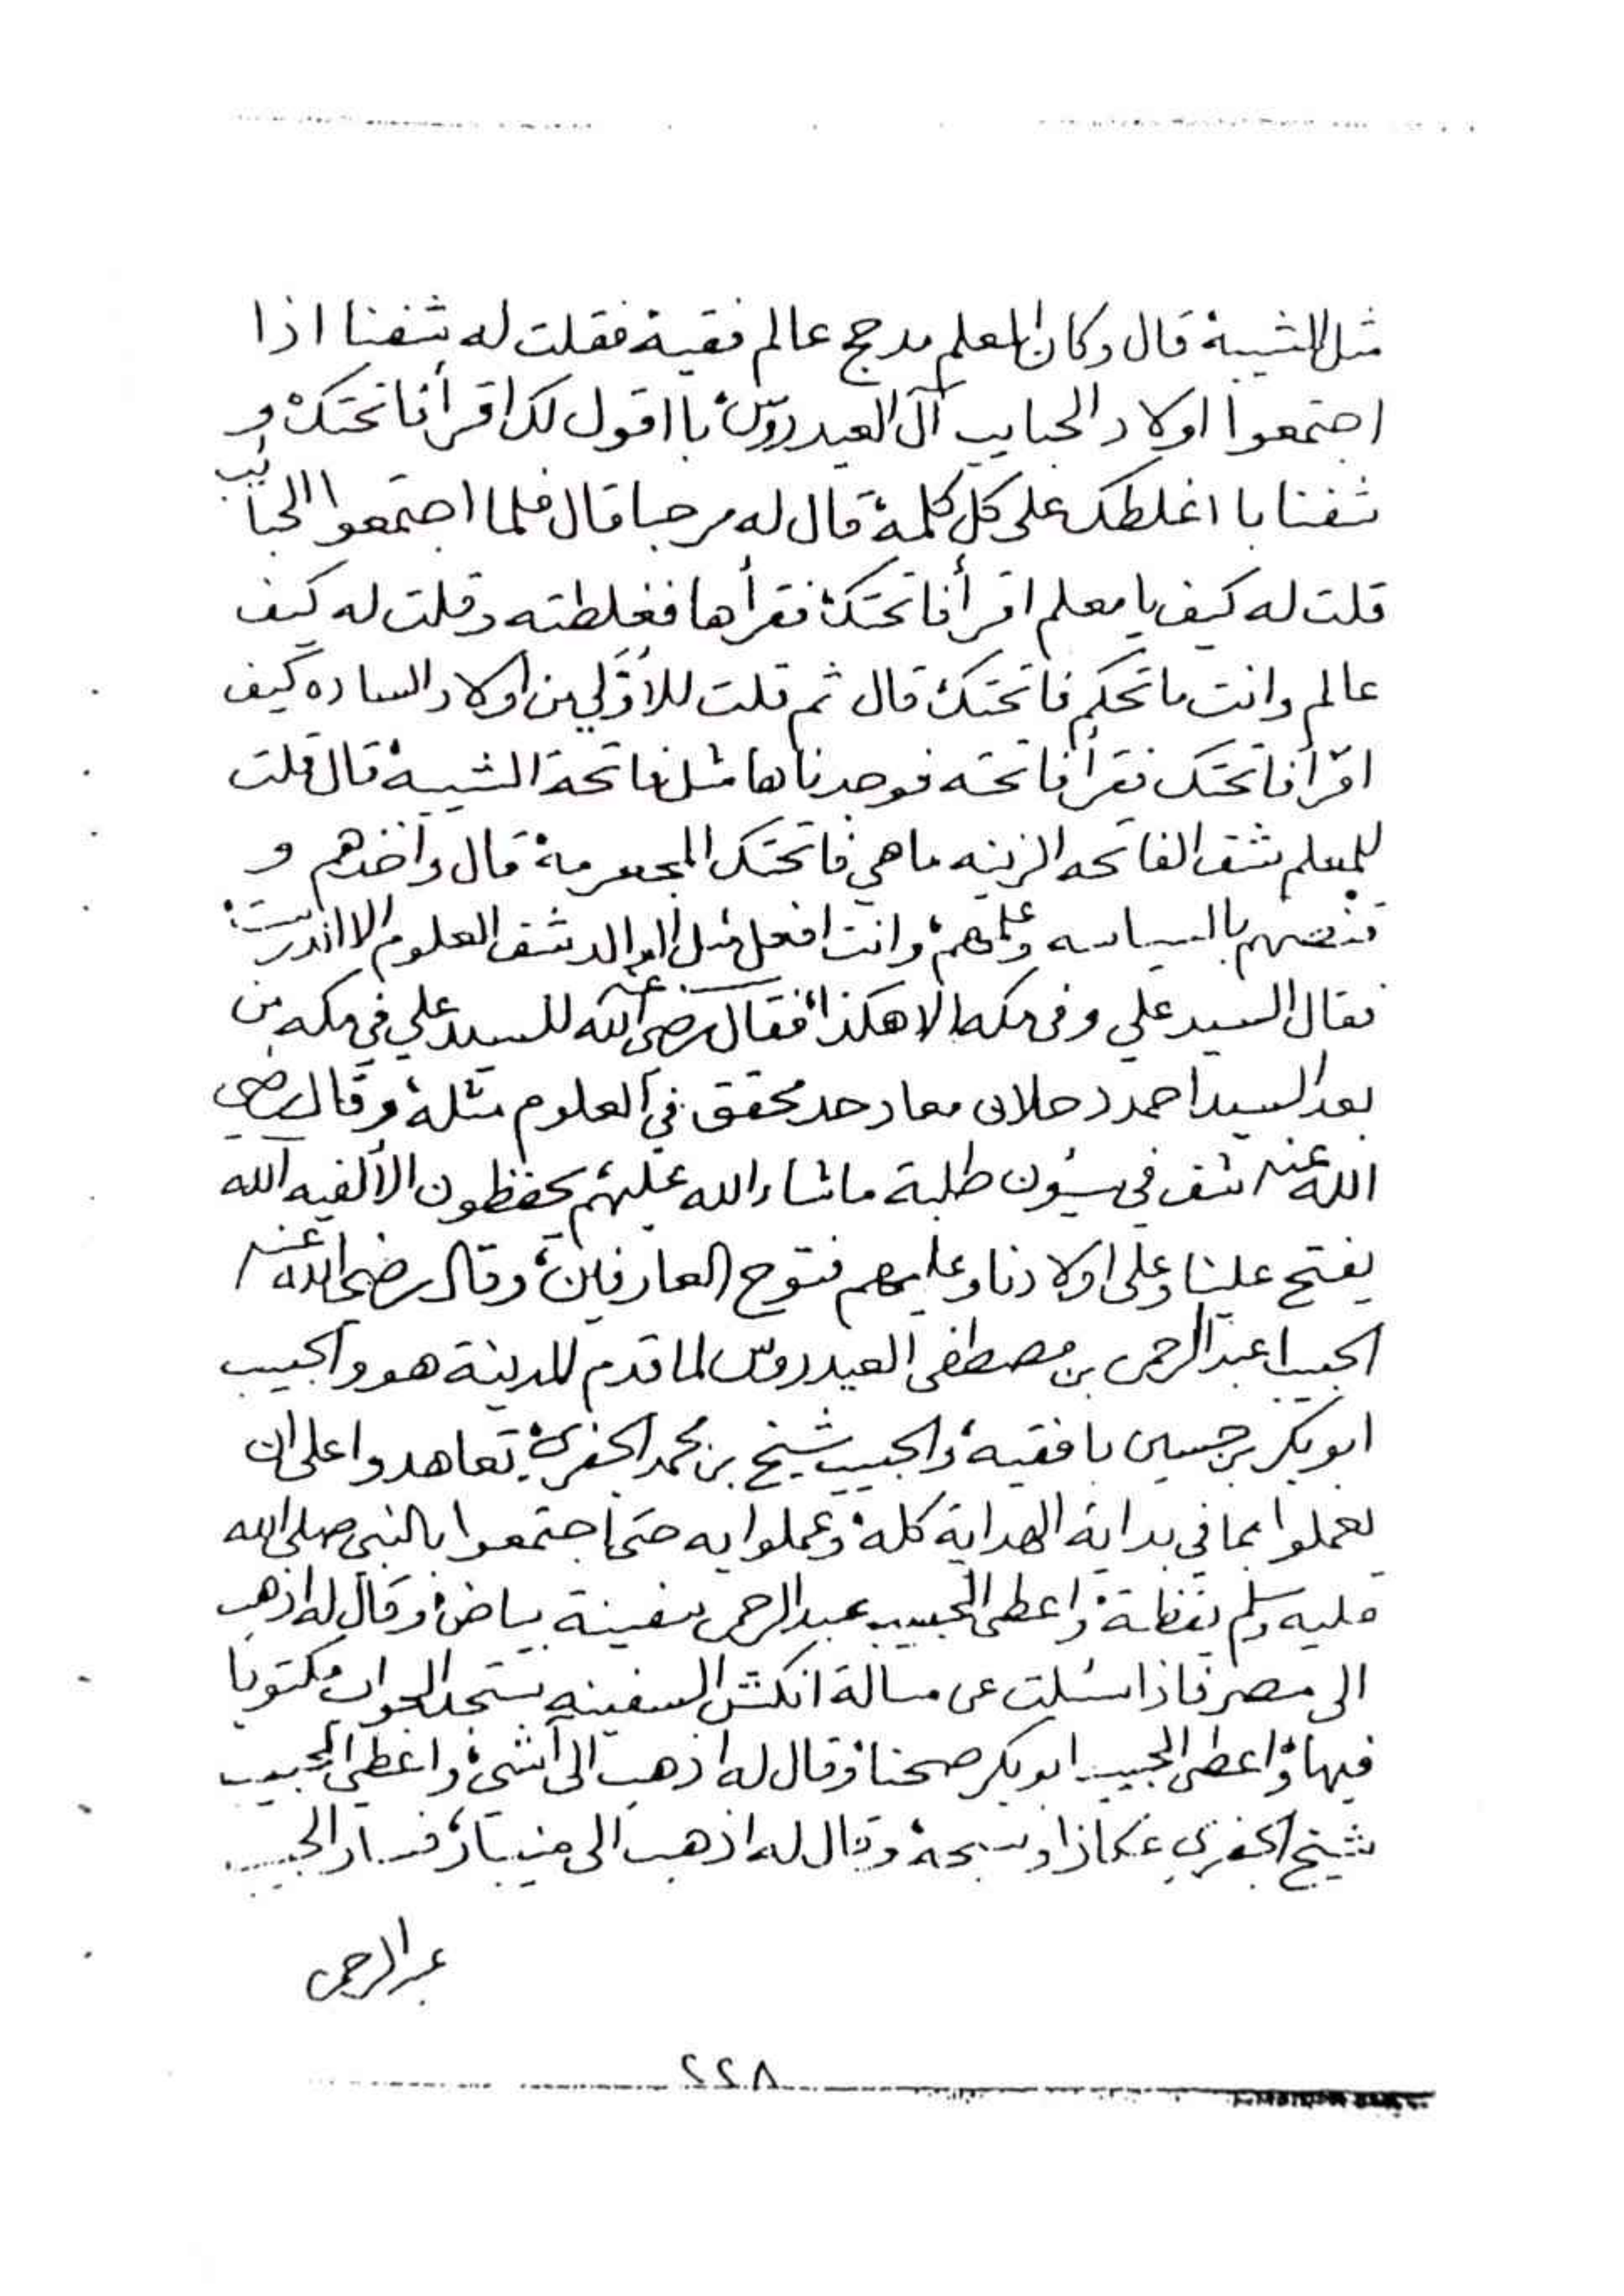 مثل الشيبة قال وكان المعلم مدحج عالم فقيه فقلت له شفنا اذا
اجتمعوا اولاد الحبايب آل العيدروس با اقول لك اقرأ فاتحتك و
شفنا با اغلطك على كل كلمة قال له مرحبا قال فلما اجتمعوا الحبايب
قلت له كيف يا معلم اقرأ فاتحتك فقرأها فغلطته وقلت له كيف
عالم وانت ما تحكم فاتحتك قال ثم قلت للأوّلي من اولاد الساده كيف
اقرأ فاتحتك فقرأ فاتحته فوجدناها مثل فاتحة الشيبة قال قلت
للمعلم شف الفاتحه الزينه ما هي فاتحتك المجعرمة قال واخذهم و
بالسياسه وعلمهم وانت افعل مثل الوالد شف العلوم الا اندرست
فقال السيد علي وفي مكه الا هكذا فقال رضي الله عنه للسيد علي في مكه من
بعد السيد احمد دحلان معاد حد محقق في العلوم مثله وقال رضي
الله عنه شف في سيؤن طلبة ما شاء الله عليهم يحفظون الألفيه الله
يفتح علينا وعلى اولادنا وعليهم فتوح العارفين وقال رضي الله عنه
الحبيب عبد الرحمن بن مصطفى العيدروس لما قدم للمدينة هو والحبيب
ابوبكر بن حسين بافقيه والحبيب شيخ بن محمد الجفري تعاهدوا على ان
يعملوا بما في بداية الهداية كله وعملوا به حتى اجتمعوا بالنبي صلى الله
عليه وسلم يقظة واعطى الحبيب عبد الرحمن سفينة بياض وقال له اذهب
الى مصر فاذا سئلت عن مسالة انكش السفينه ستجد الجواب مكتوبا
فيها واعطى الحبيب ابوبكر صحنا وقال له اذهب الى آشي واعطى الحبيب
شيخ الجفري عكازا وسبحة وقال له اذهب الى منيبار فسار الحبيب
عبد الرحمن
٢٢٨